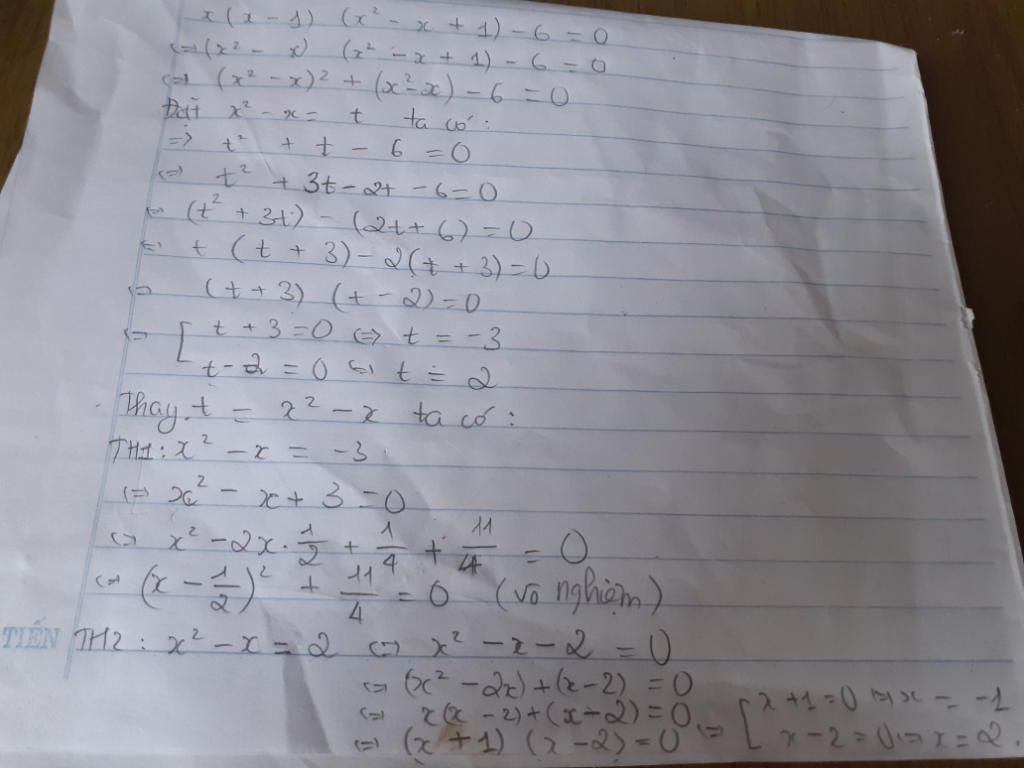 x(x-1) (x² - x + 1) - 6 = 0
⇔ (x² - x) (x² - x + 1) - 6 = 0
⇔ (x² - x)² + (x² - x) - 6 = 0
Đặt x² - x = t ta có:
⇒ t² + t - 6 = 0
⇔ t² + 3t - 2t - 6 = 0
⇔ (t² + 3t) - (2t + 6) = 0
⇔ t (t + 3) - 2(t + 3) = 0
⇔ (t + 3) (t - 2) = 0
⇔ [ t + 3 = 0 ⇔ t = -3
t - 2 = 0 ⇔ t = 2
Thay t = x² - x ta có:
TH1: x² - x = -3
⇔ x² - x + 3 = 0
⇔ x² - 2x . 1/2 + 1/4 + 11/4 = 0
⇔ (x - 1/2)² + 11/4 = 0 (vô nghiệm)
TIẾN
TH2: x² - x = 2 ⇔ x² - x - 2 = 0
⇔ (x² - 2x) + (x - 2) = 0
⇔ x(x - 2) + (x - 2) = 0
⇔ (x + 1) (x - 2) = 0 ⇔ [ x + 1 = 0 ⇔ x = -1
x - 2 = 0 ⇔ x = 2.